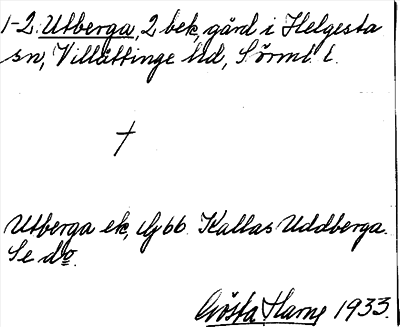 1-2. Utberga, 2 bek, gård i Helgesta
sn, Villåttinge hd, Sörml. l.
†
Utberga ek, Jg 66. Kallas Uddberga.
Se do.
Gösta Harne 1933.